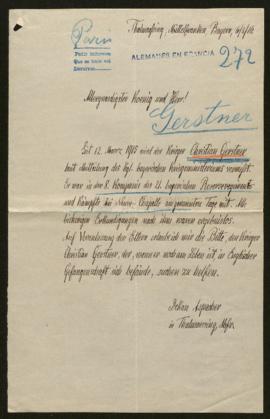 Paris
Petit informes
Que se halle en
Servirse.
Thalmässing, Mittelfranken, Bayern, 6/6/16
ALEMANES EN FRANCIA
272
Allergnädigster Koenig und Herr!
Gerstner
Seit 12. Maerz 1915 wird der Krieger Christian Gerstner
laut Mitteilung des Kgl. bayerischen Kriegsministeriums vermißt.
Er war in der 8. Kompanie des 21. bayerischen Reserveregiments
und kämpfte bei Neuve-Chapelle am genannten Tage mit. Alle
bisherigen Erkundigungen nach ihm waren ergebnislos.
Auf Veranlassung der Eltern erlaube ich mir die Bitte, den Krieger
Christian Gerstner, der, wenn er noch am Leben ist, in Englischer
Gefangenschaft sich befände, suchen zu helfen.
in Thalmaessing, Mfr.